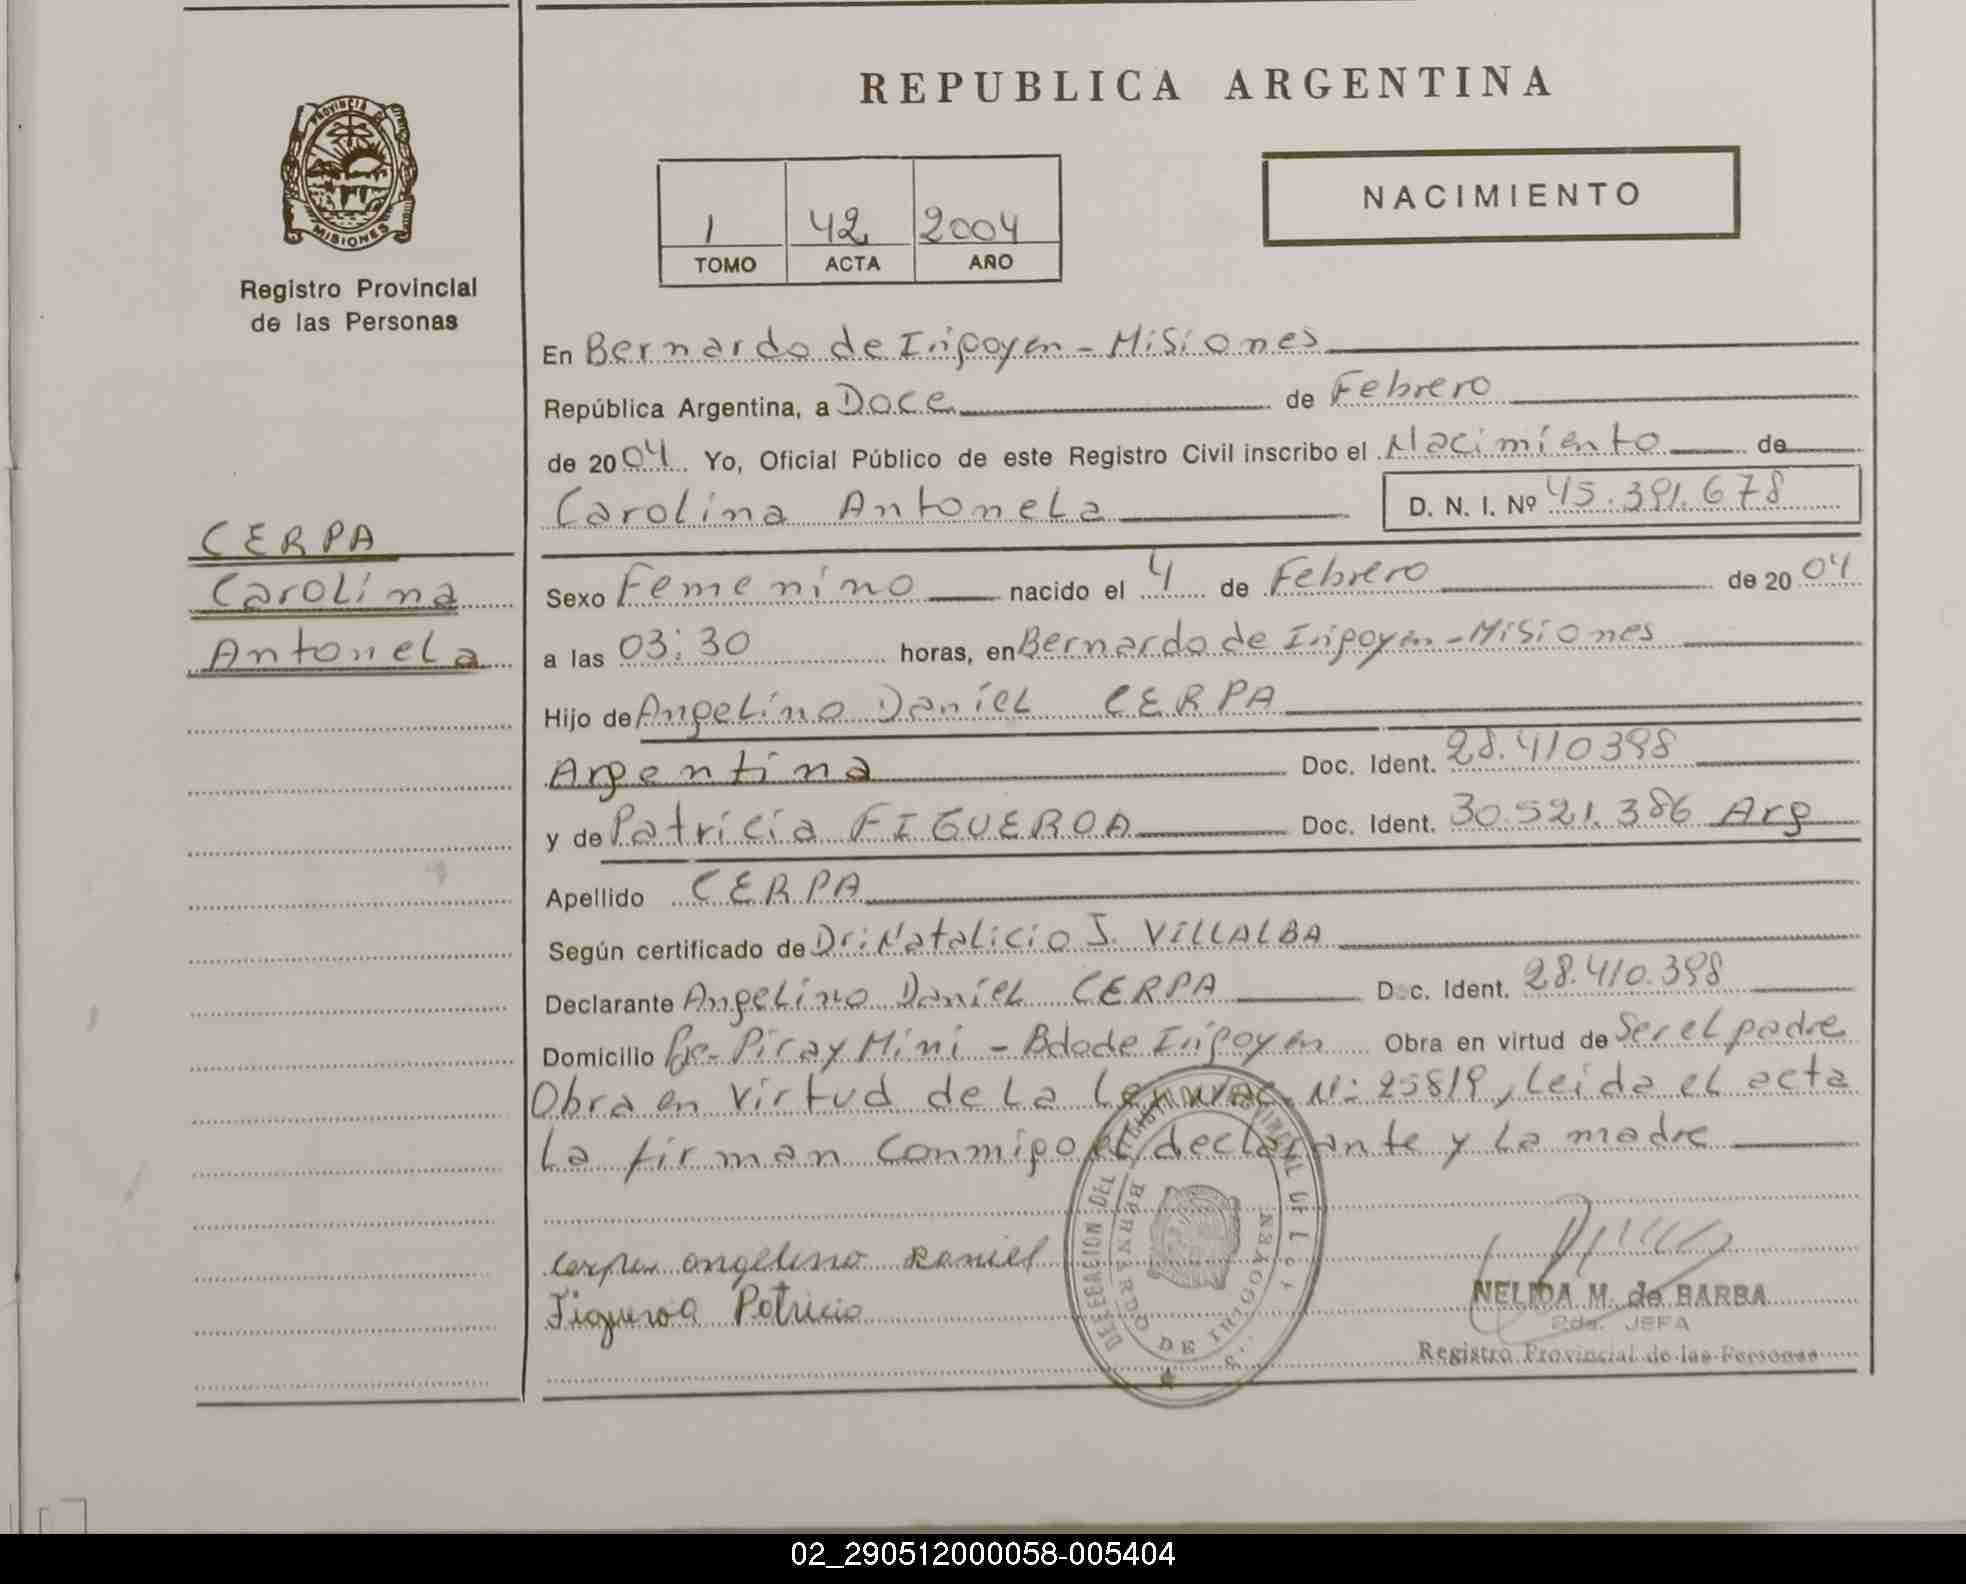 REPUBLICA ARGENTINA
PROVINCIA DE
MISIONES
Registro Provincial
de las Personas
1 42 2004
TOMO ACTA AÑO
NACIMIENTO
CERPA
Carolina
Antonela
En Bernardo de Irigoyen - Misiones
República Argentina, a Doce de Febrero
de 2004 Yo, Oficial Público de este Registro Civil inscribo el Nacimiento de
Carolina Antonela D. N. I. Nº 45.391.678
Sexo Femenino nacido el 4 de Febrero de 2004
a las 03:30 horas, en Bernardo de Irigoyen - Misiones
Hijo de Angelino Daniel CERPA
Argentina Doc. Ident. 28.410398
y de Patricia FIGUEROA Doc. Ident. 30.521.386 Arg
Apellido CERPA
Según certificado de Dr: Natalicio J. VILLALBA
Declarante Angelino Daniel CERPA Doc. Ident. 28.410.398
Domicilio Piray Mini - Bdo de Irigoyen Obra en virtud de Ser el padre
Obra en virtud de La Ley Nac. N: 25819, Leida el acta
La firman conmigo el declarante y La madre
DELEGACION DEL REGISTRO PROVINCIAL DE LAS
BERNARDO DE IRIGOYEN
Cerpa angelino Daniel
Figueroa Patricia
NELIDA M. de BARBA
2da. JEFA
Registro Provincial de las Personas
02_290512000058-005404